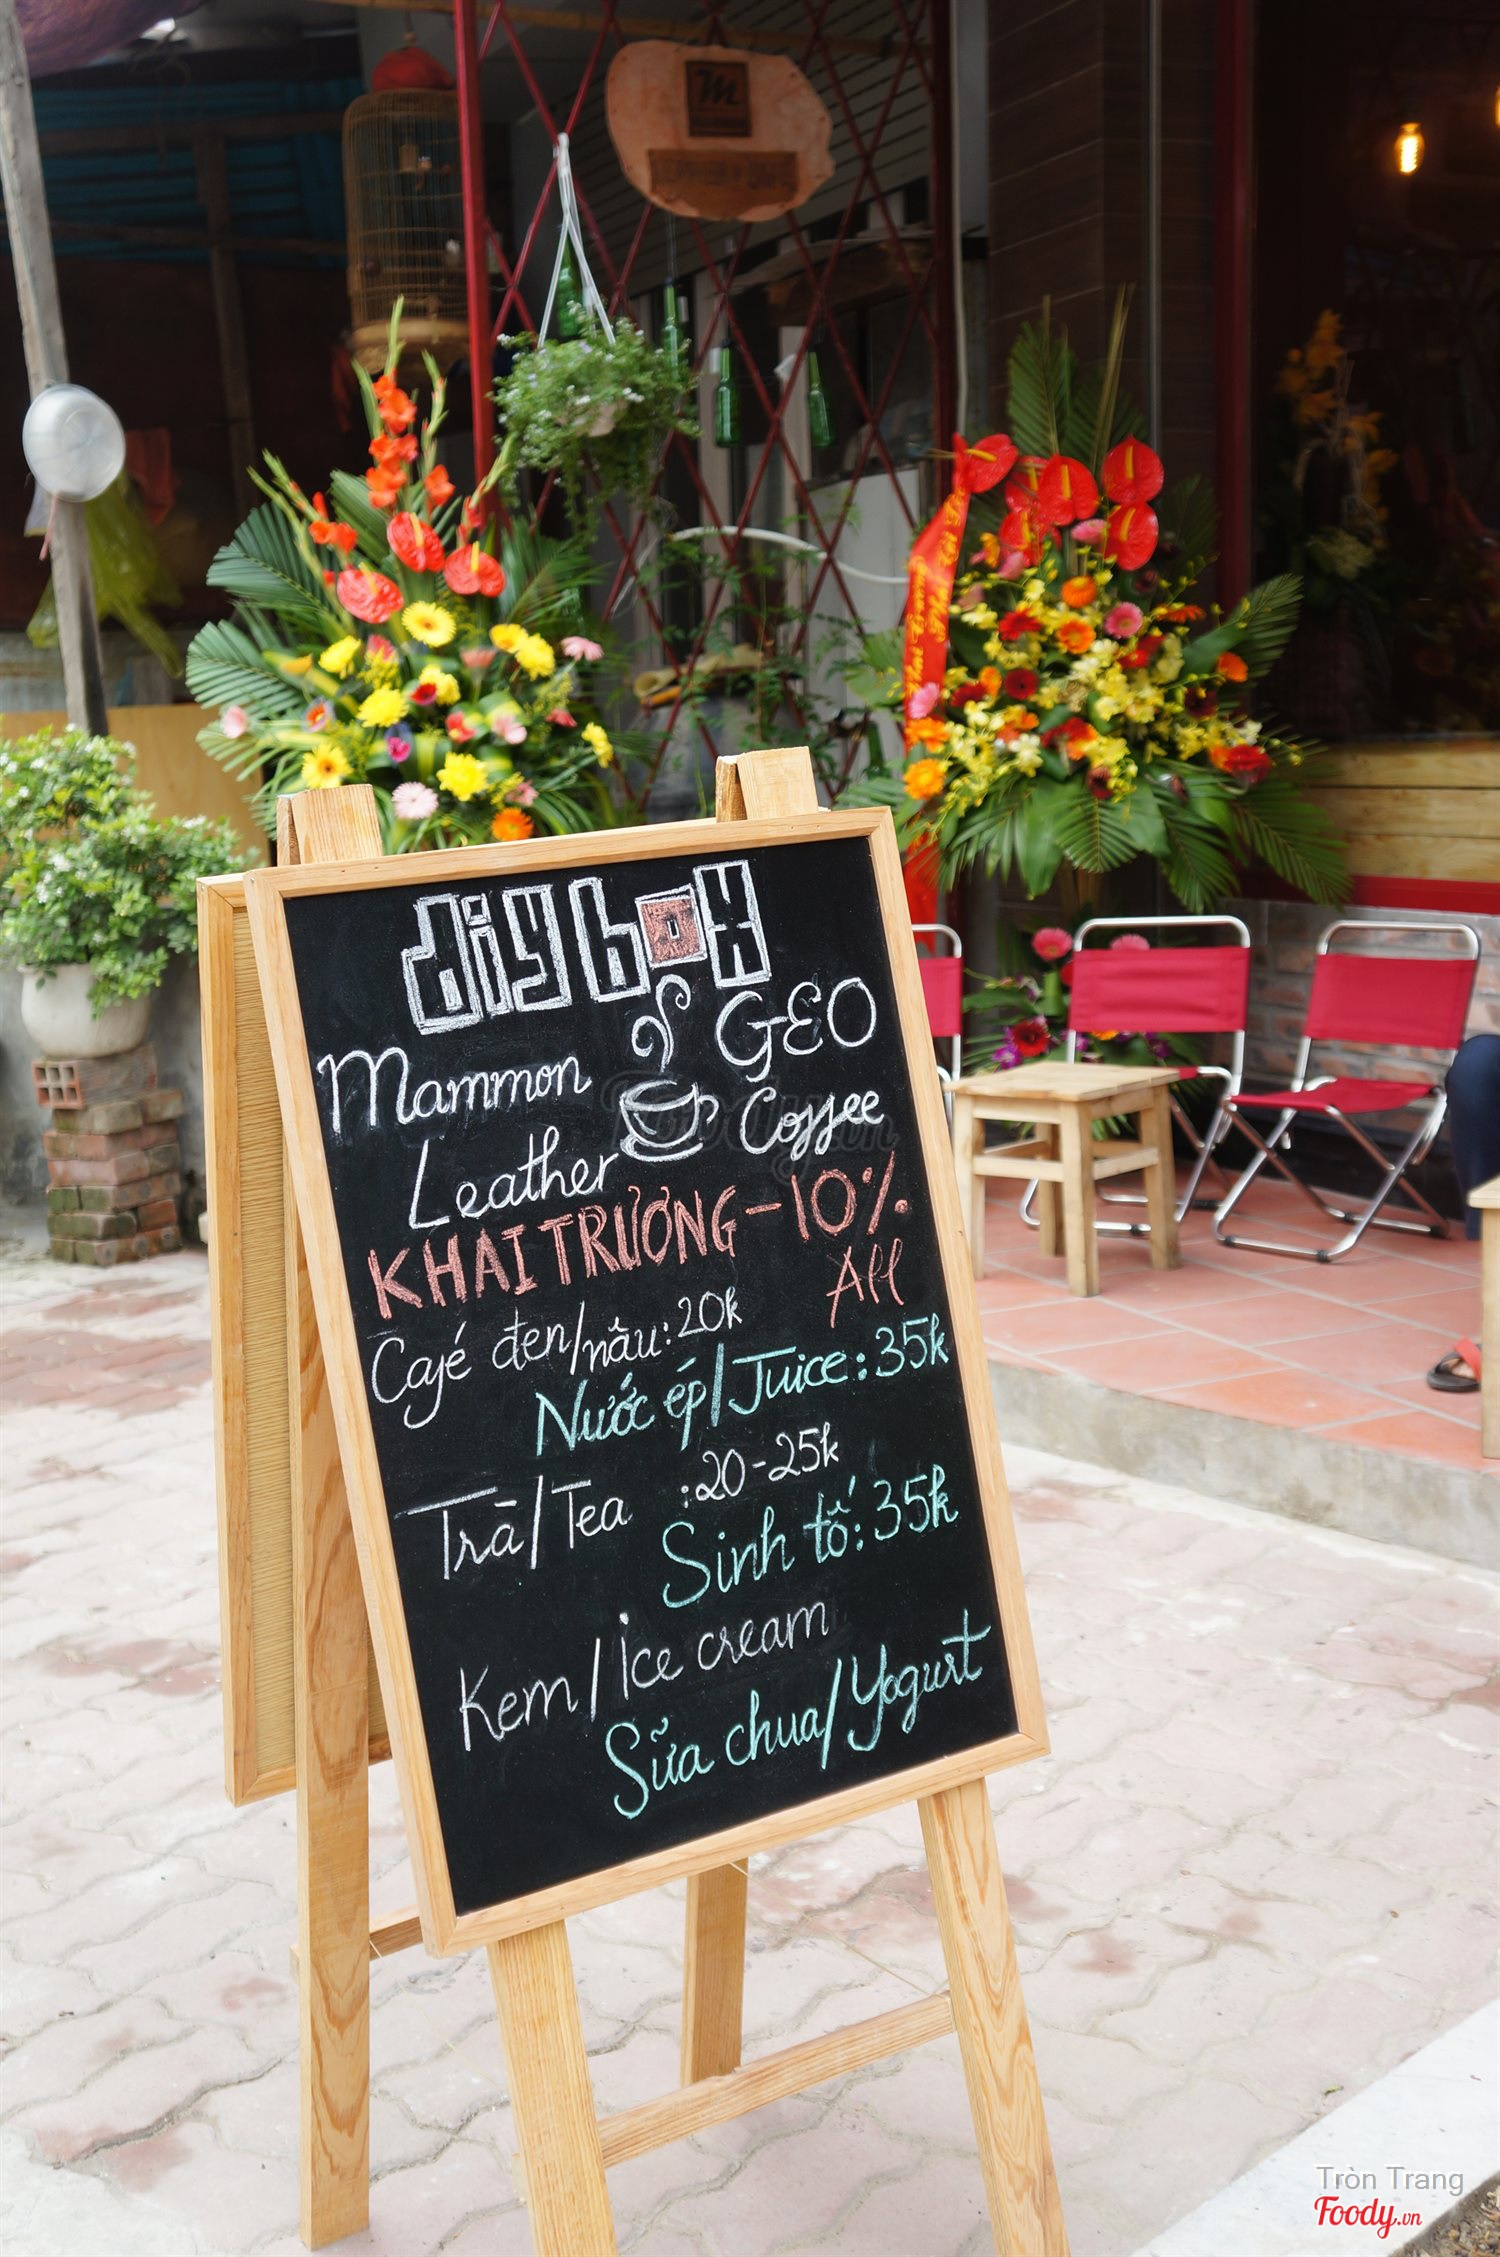 m
diy box
Mammon
GEO
Leather
Coffee
KHAI TRƯƠNG - 10%
All
Café đen/nâu: 20k
Nước ép/Juice: 35k
Trà/Tea : 20-25k
Sinh tố: 35k
Kem/Ice cream
Sữa chua/Yogurt
Foody.vn
Tròn Trang
Foody.vn